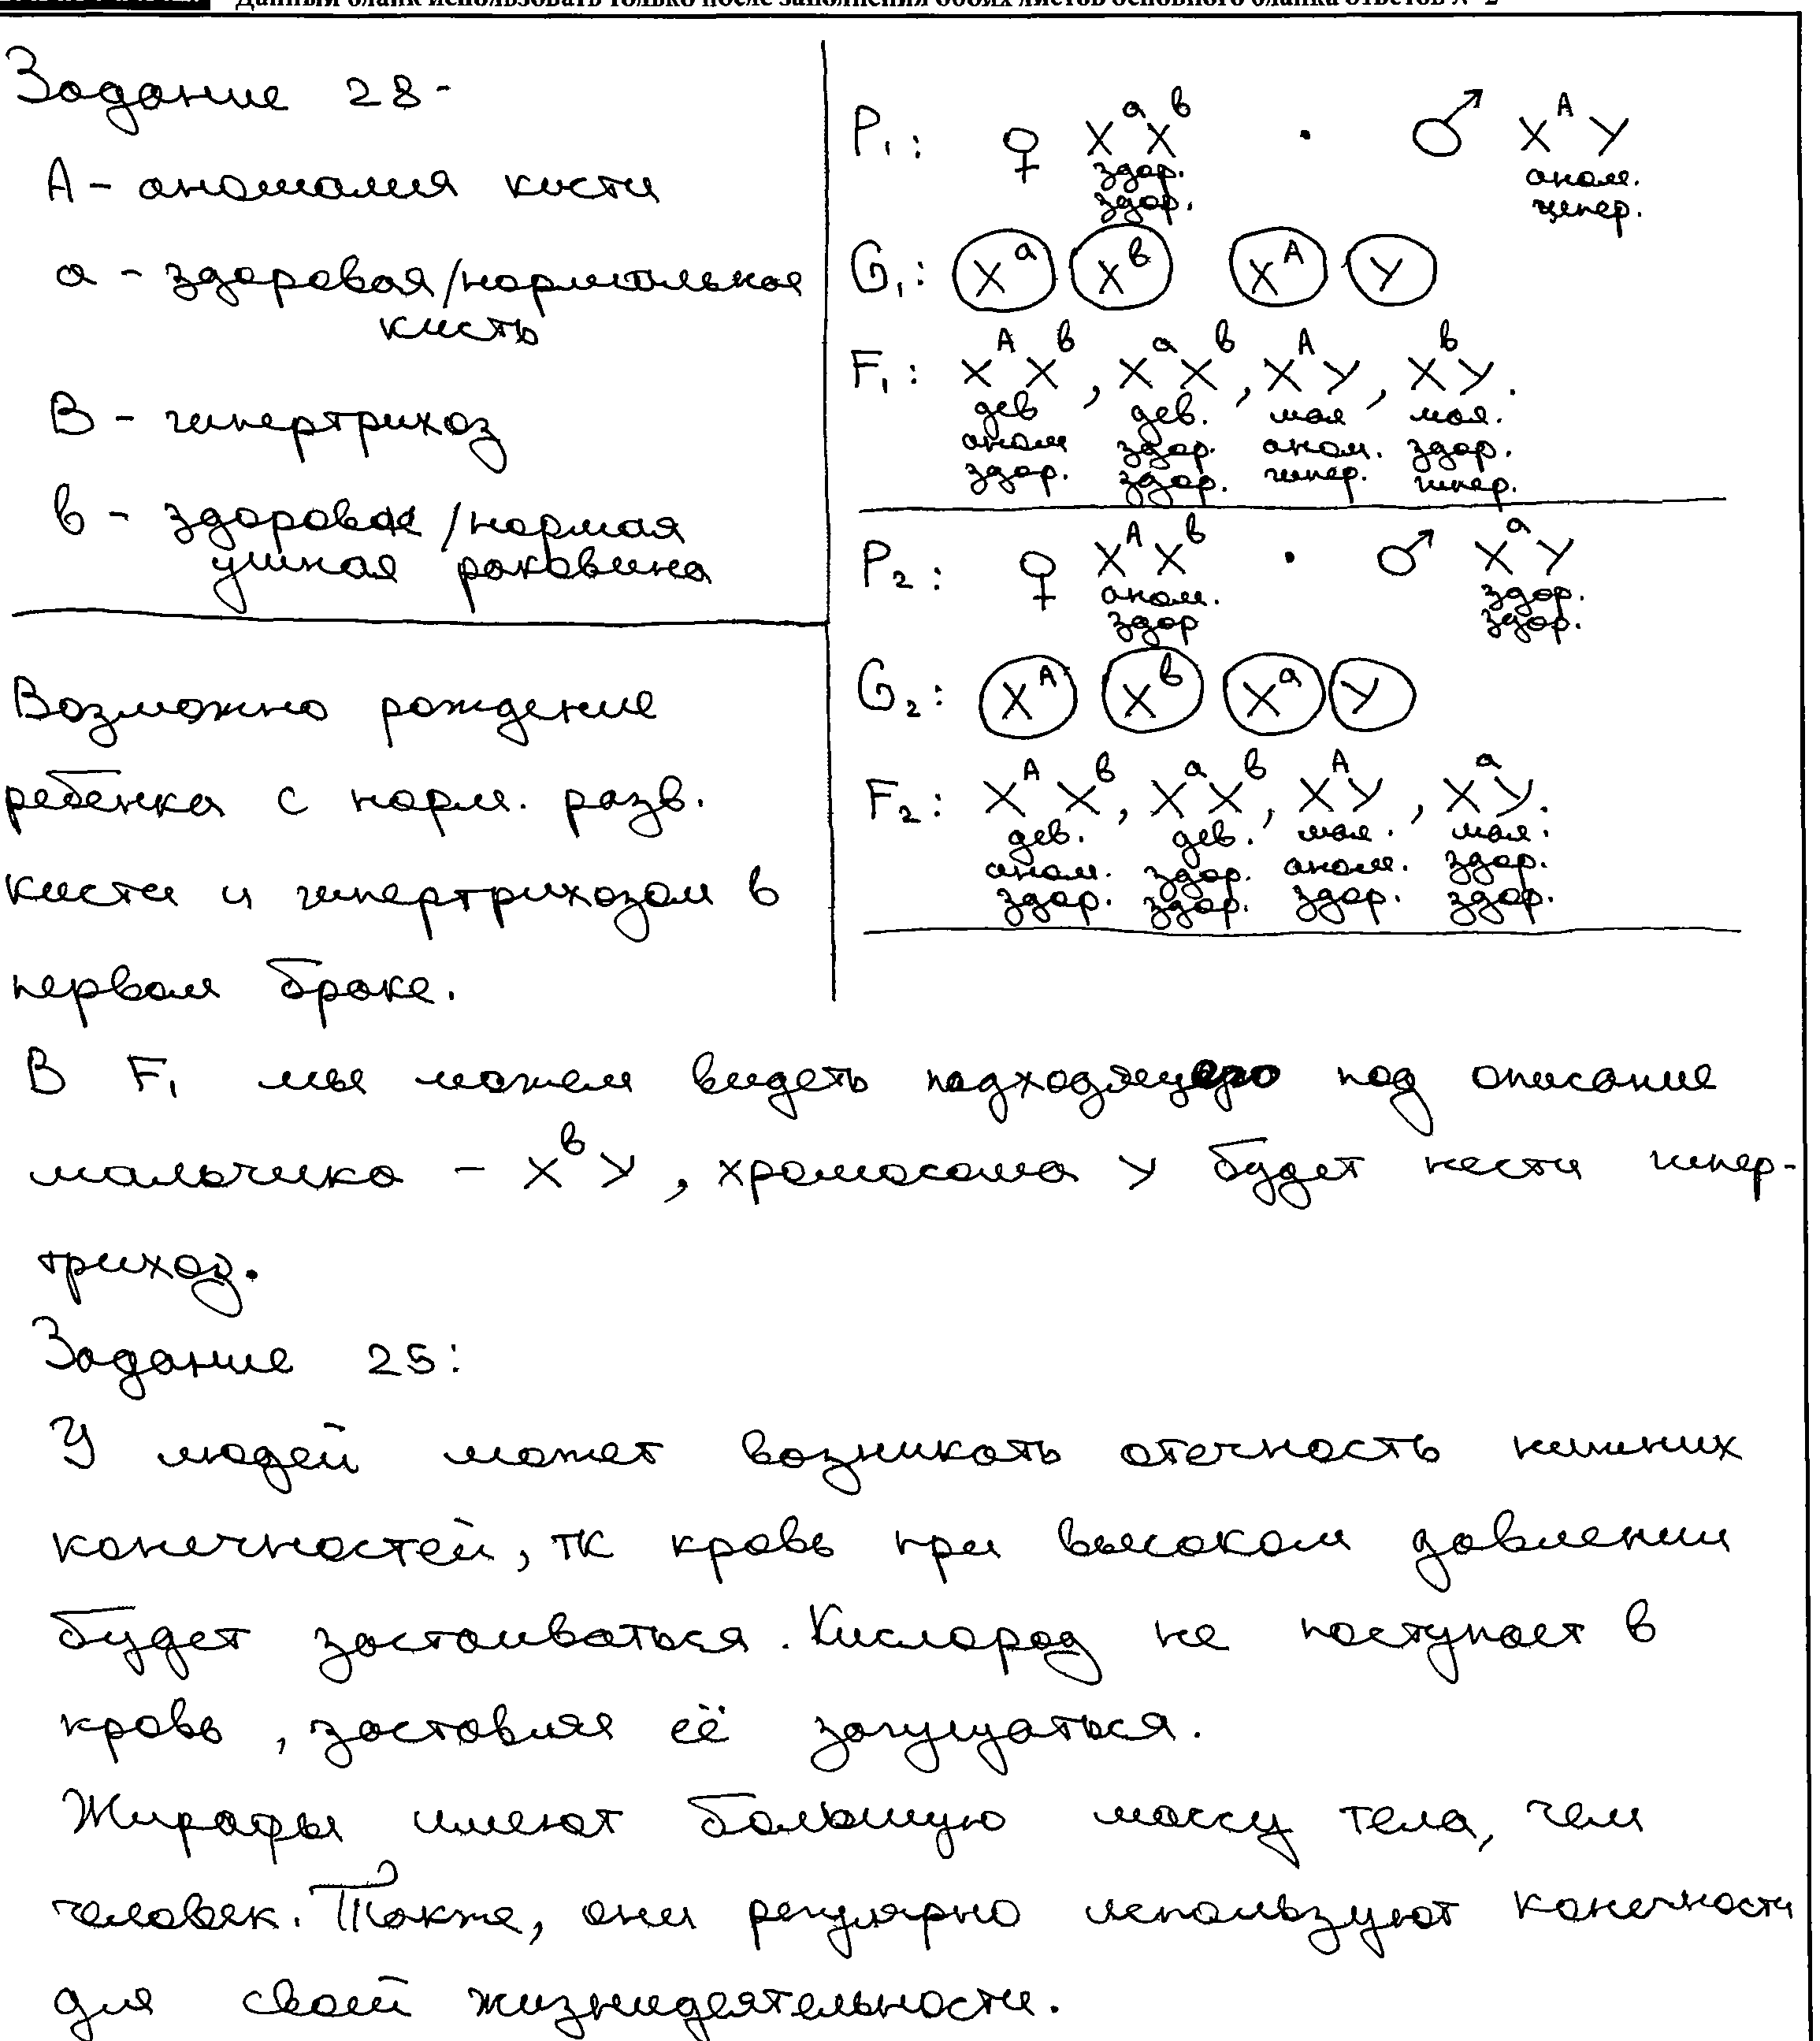 Данный бланк использовать только после заполнения обоих листов основного бланка ответов № 2
Задание 28-
А - аномалия кисти
а - здоровая/нормальная
кисть
В - гипертрихоз
в - здоровая/нормая
ушная раковина
Возможно рождение
ребёнка с норм. разв.
кисти и гипертрихозом в
первом браке.
P₁: ♀ XᵃXᵇ · ♂ XᴬY
здор. аном.
здор. гипер.
G₁: Xᵃ Xᵇ Xᴬ Y
F₁: XᴬXᵇ, XᵃXᵇ, XᴬY, XᵇY.
дев дев. мал мал.
аном здор. аном. здор.
здор. здор. гипер. гипер.
P₂: ♀ XᴬXᵇ · ♂ XᵃY
аном. здор.
здор здор.
G₂: Xᴬ Xᵇ Xᵃ Y
F₂: XᴬXᵇ, XᵃXᵇ, XᴬY, XᵃY.
дев. дев. мал. мал.
аном. здор. аном. здор.
здор. здор. здор. здор.
В F₁ мы можем видеть подходящего под описание
мальчика - XᵇY, хромосома Y будет нести гипер-
трихоз.
Задание 25:
У людей может возникать отечность нижних
конечностей, тк кровь при высоком давлении
будет застаиваться. Кислород не поступает в
кровь, заставляя её загущаться.
Жирафы имеют большую массу тела, чем
человек. Также, они регулярно используют конечности
для своей жизнидеятельности.